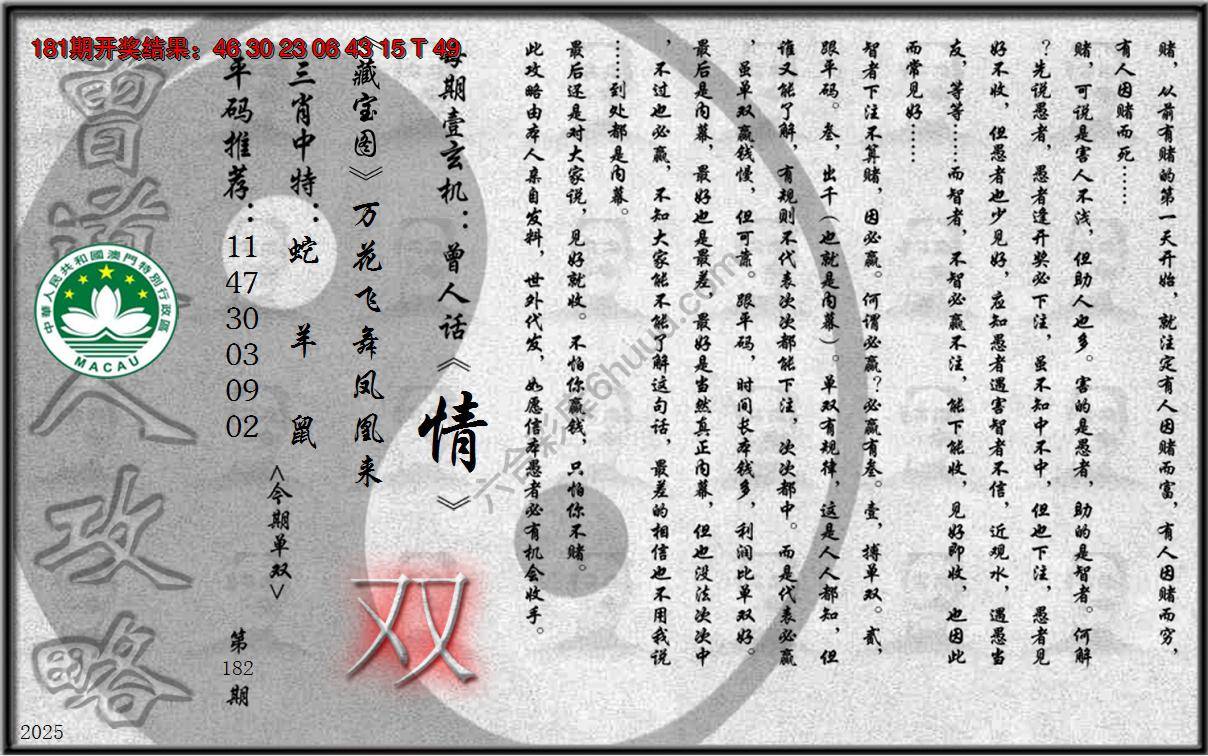 181期开奖结果：46 30 23 06 43 15 T 49
赌，从前有赌的第一天开始，就注定有人因赌而富，有人因赌而穷，
有人因赌而死……
赌，可说是害人不浅，但助人也多。害的是愚者，助的是智者。何解
？先说愚者，愚者逢开奖必下注，虽不知中不中，但也下注，愚者见
好不收，但愚者也少见好，应知愚者遇害智者不信，近观水，遇愚当
友，等等……而智者，不智必赢不注，能下能收，见好即收，也因此
而常见好……
智者下注不算赌，因必赢。何谓必赢？必赢有叁。壹，搏单双。贰，
跟平码。叁，出千（也就是内幕）。单双有规律，这是人人都知，但
谁又能了解，有规则不代表次次都能下注，次次都中。而是代表必赢
，虽单双赢钱慢，但可靠。跟平码，时间长本钱多，利润比单双好。
最后是内幕，最好也是最差，最好是当然真正内幕，但也没法次次中
，不过也必赢，不知大家能不能了解这句话，最差的相信也不用我说
……到处都是内幕。
最后还是对大家说，见好就收。不怕你赢钱，只怕你不赌。
此攻略由本人亲自发料，世外代发，如愿信本愚者必有机会收手。
每期壹玄机：曾人话《情》
《藏宝图》万花飞舞凤凰来
双
三肖中特：蛇 羊 鼠
<今期单双>
平码推荐：11 47 30 03 09 02
第182期
曾道人攻略
中華人民共和國澳門特別行政區
MACAU
2025